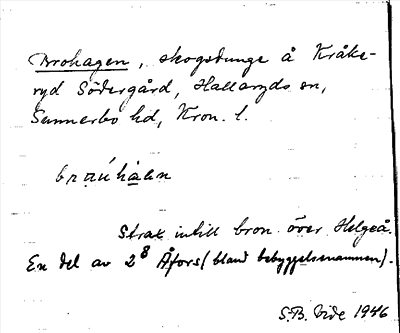 Brohagen, skogsdunge å Kråke-
ryd Södergård, Hallaryds sn,
Sunnerbo hd, Kron. l.
Strax intill bron över Helgeå.
En del av 2⁸ Åfors (bland bebyggelsenamnen).
S.B. Vide 1946